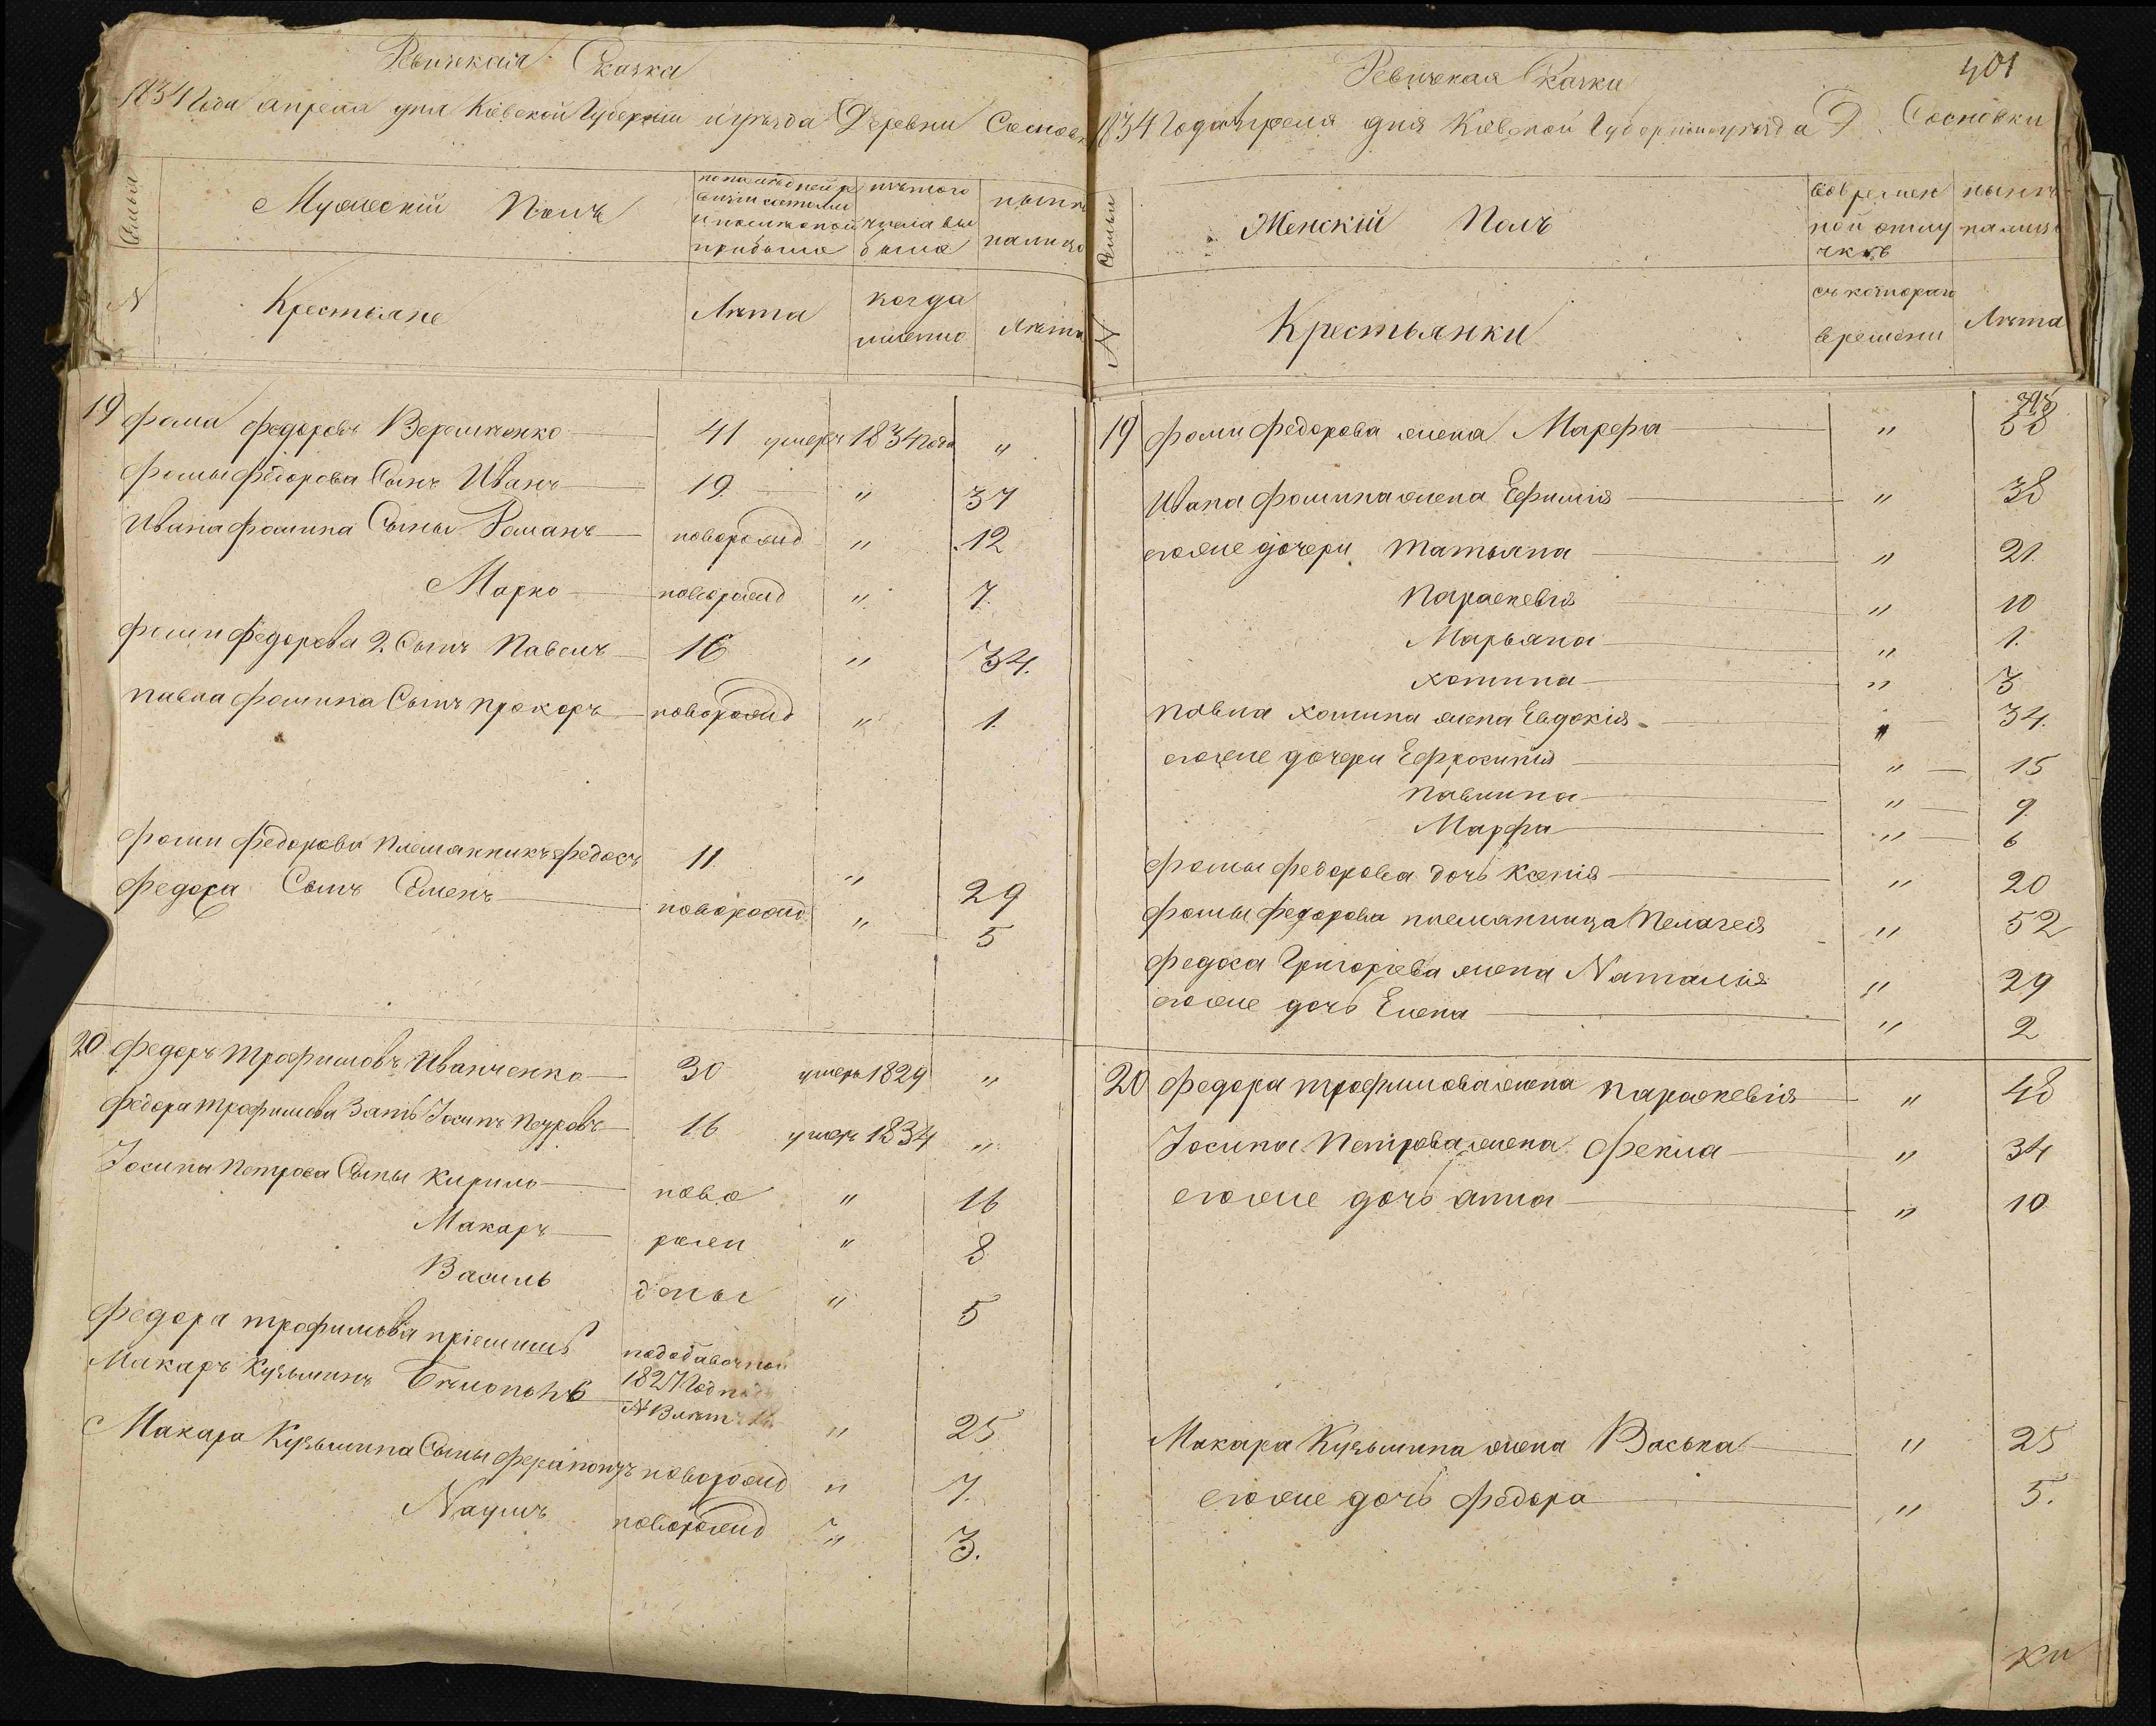 Ревижская Сказка
1834 Года апреля дня Кіевской Губерніи и уѣзда Деревни Сосновки
Семьи
Мужескій Полъ
по последней ревизіи состояло и после оной прибыло
изъ того числа выбыло
ныне на лицо
N
Крестьяне
Лѣта
когда именно
Лѣта
19 Фома Федоровъ Верешченко 41 умеръ 1834 года "
Фомы Федорова Сынъ Иванъ 19 " 37
Ивана Фомина Сыны Романъ новорожд " 12
Марко новорожд " 7.
Фоми Федорова 2. Сынъ Павелъ 16 " 34.
павла Фомина Сынъ прокоръ новорожд " 1.
Фоми Федорова племянникъ Федосъ 11 " 29
Федоса Сынъ Семенъ новорожд " 5
20 Федоръ трофимовъ Иванченко 30 умеръ 1829 "
Федора трофимова Зять Іосипъ Петровъ 16 умеръ 1834 "
Іосипа Петрова Сыны Кирило ново " 16
Макаръ рожен " 8
Василь доные " 5
Федора трофимова пріемишъ
Макаръ Кузьминъ
подобавочной 1827 Год
" 25
Макара Кузьмина Сыны Ферапонтъ новорожд " 7.
Наумъ новорожд " 3.
401
Ревижская Сказка
1834 Года Апреля дня Кіевской Губерніи и уѣзда Д. Сосновки
Семьи
Женскій Полъ
во временной отлучкѣ
ныне на лицо
N
Крестьянки
съ котораго времени
Лѣта
395
19 Фоми Федорова жена Марфа " 58
Ивана Фомина жена Ефимія " 38
егоже дочери татьяна " 21.
параскевія " 10
Марьяна " 1.
хотина " 3
павла хомина жена Евдокія " 34.
егоже дочери Ефросинія " 15
павлина " 9.
Марфа " 6
Фомы Федорова дочь Ксенія " 20
Фомы Федорова племянница Пелагея " 52
Федоса Григоріева жена Наталія " 29
егоже дочь Елена " 2
20 Федора трофимова жена параскевія " 48
Іосипа Петрова жена Фекла " 34
егоже дочь анна " 10
Макара Кузьмина жена Васька " 25
егоже дочь Федора " 5.
Ки